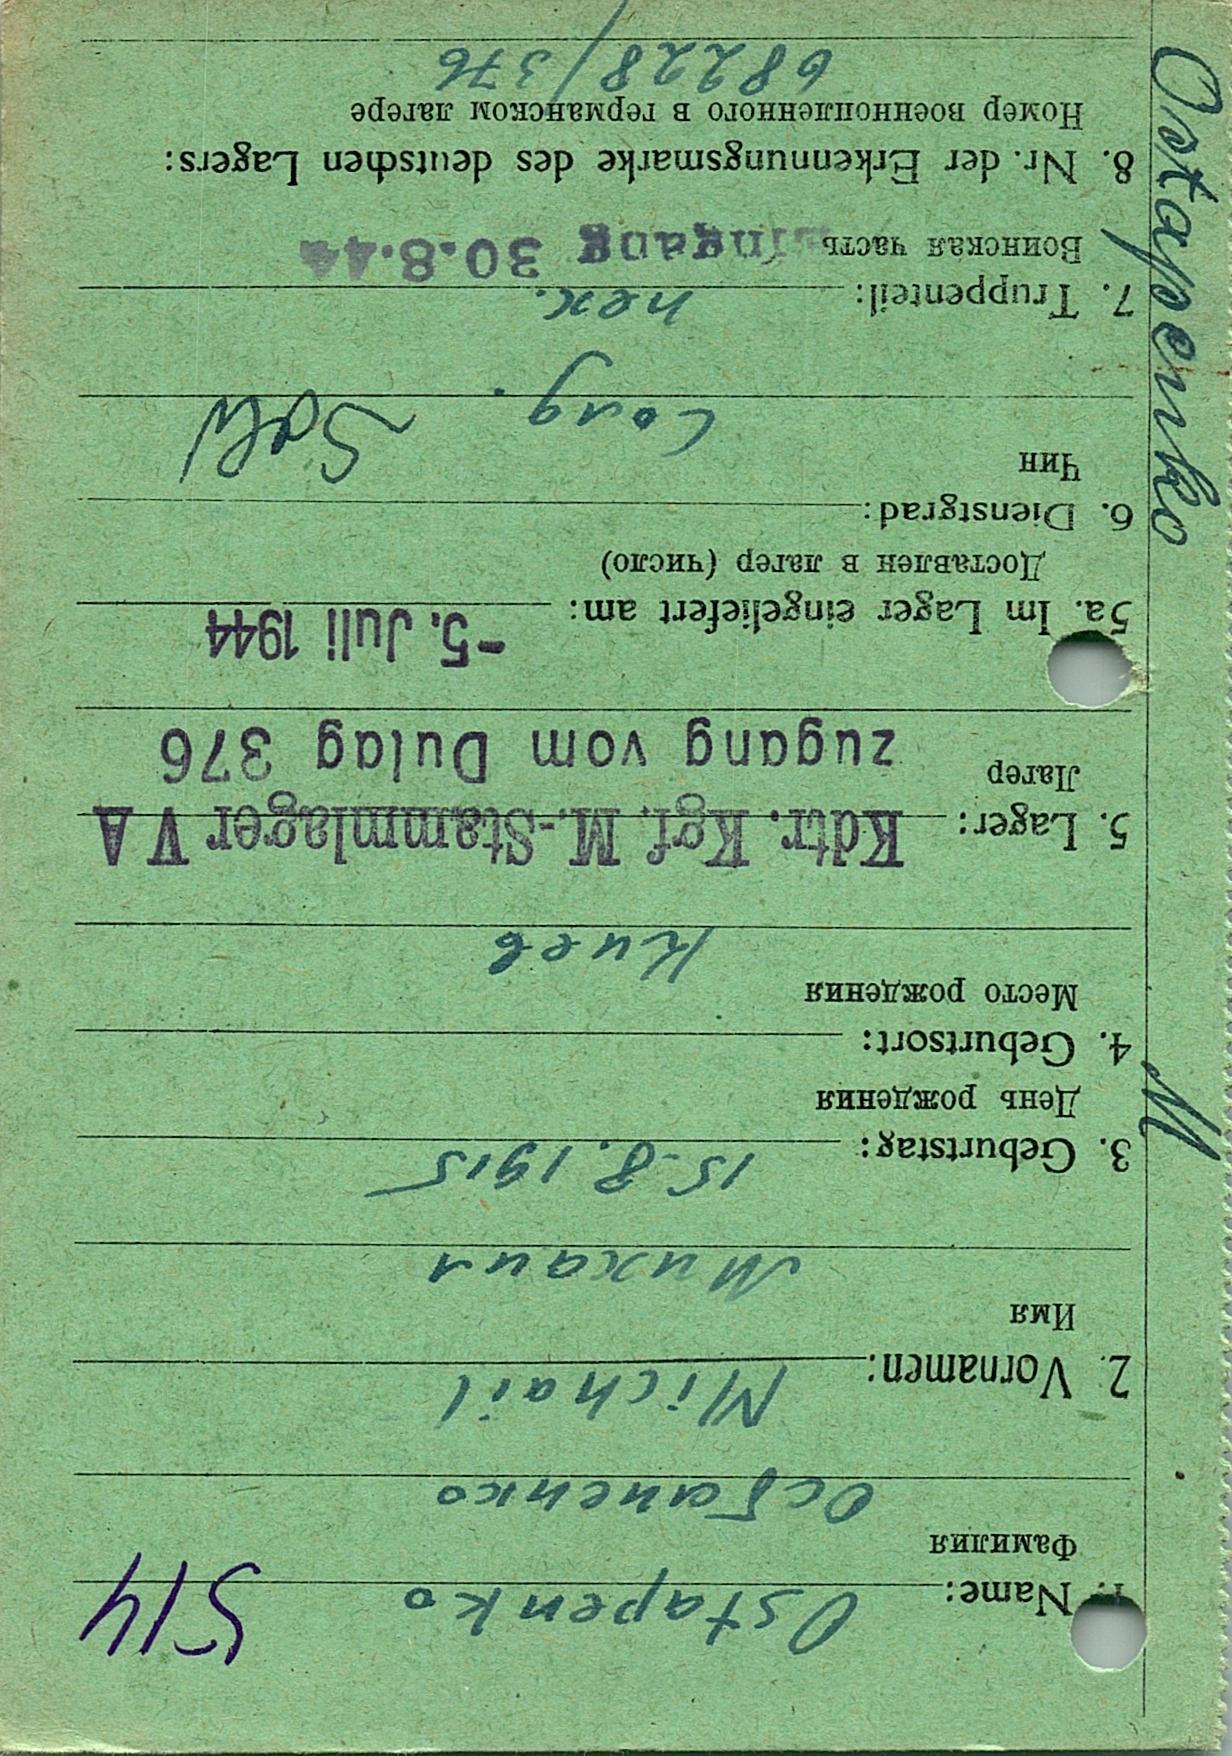 514
1. Name: Ostapenko
Фамилия
Остапенко
2. Vornamen: Michail
Имя
Михаил
3. Geburtstag: 15.8.1915
День рождения
4. Geburtsort:
Место рождения
Киев
5. Lager: Kdtr. Kgf. M.-Stammlager V A
Лагер
zugang vom Dulag 376
5a. Im Lager eingeliefert am: -5. Juli 1944
Доставлен в лагер (число)
6. Dienstgrad:
Чин
Солд. Sold
7. Truppenteil: пех.
Воинская часть
Eingang 30.8.44
8. Nr. der Erkennungsmarke des deutschen Lagers:
Номер военнопленного в германском лагере
68228/376
Ostapenko M